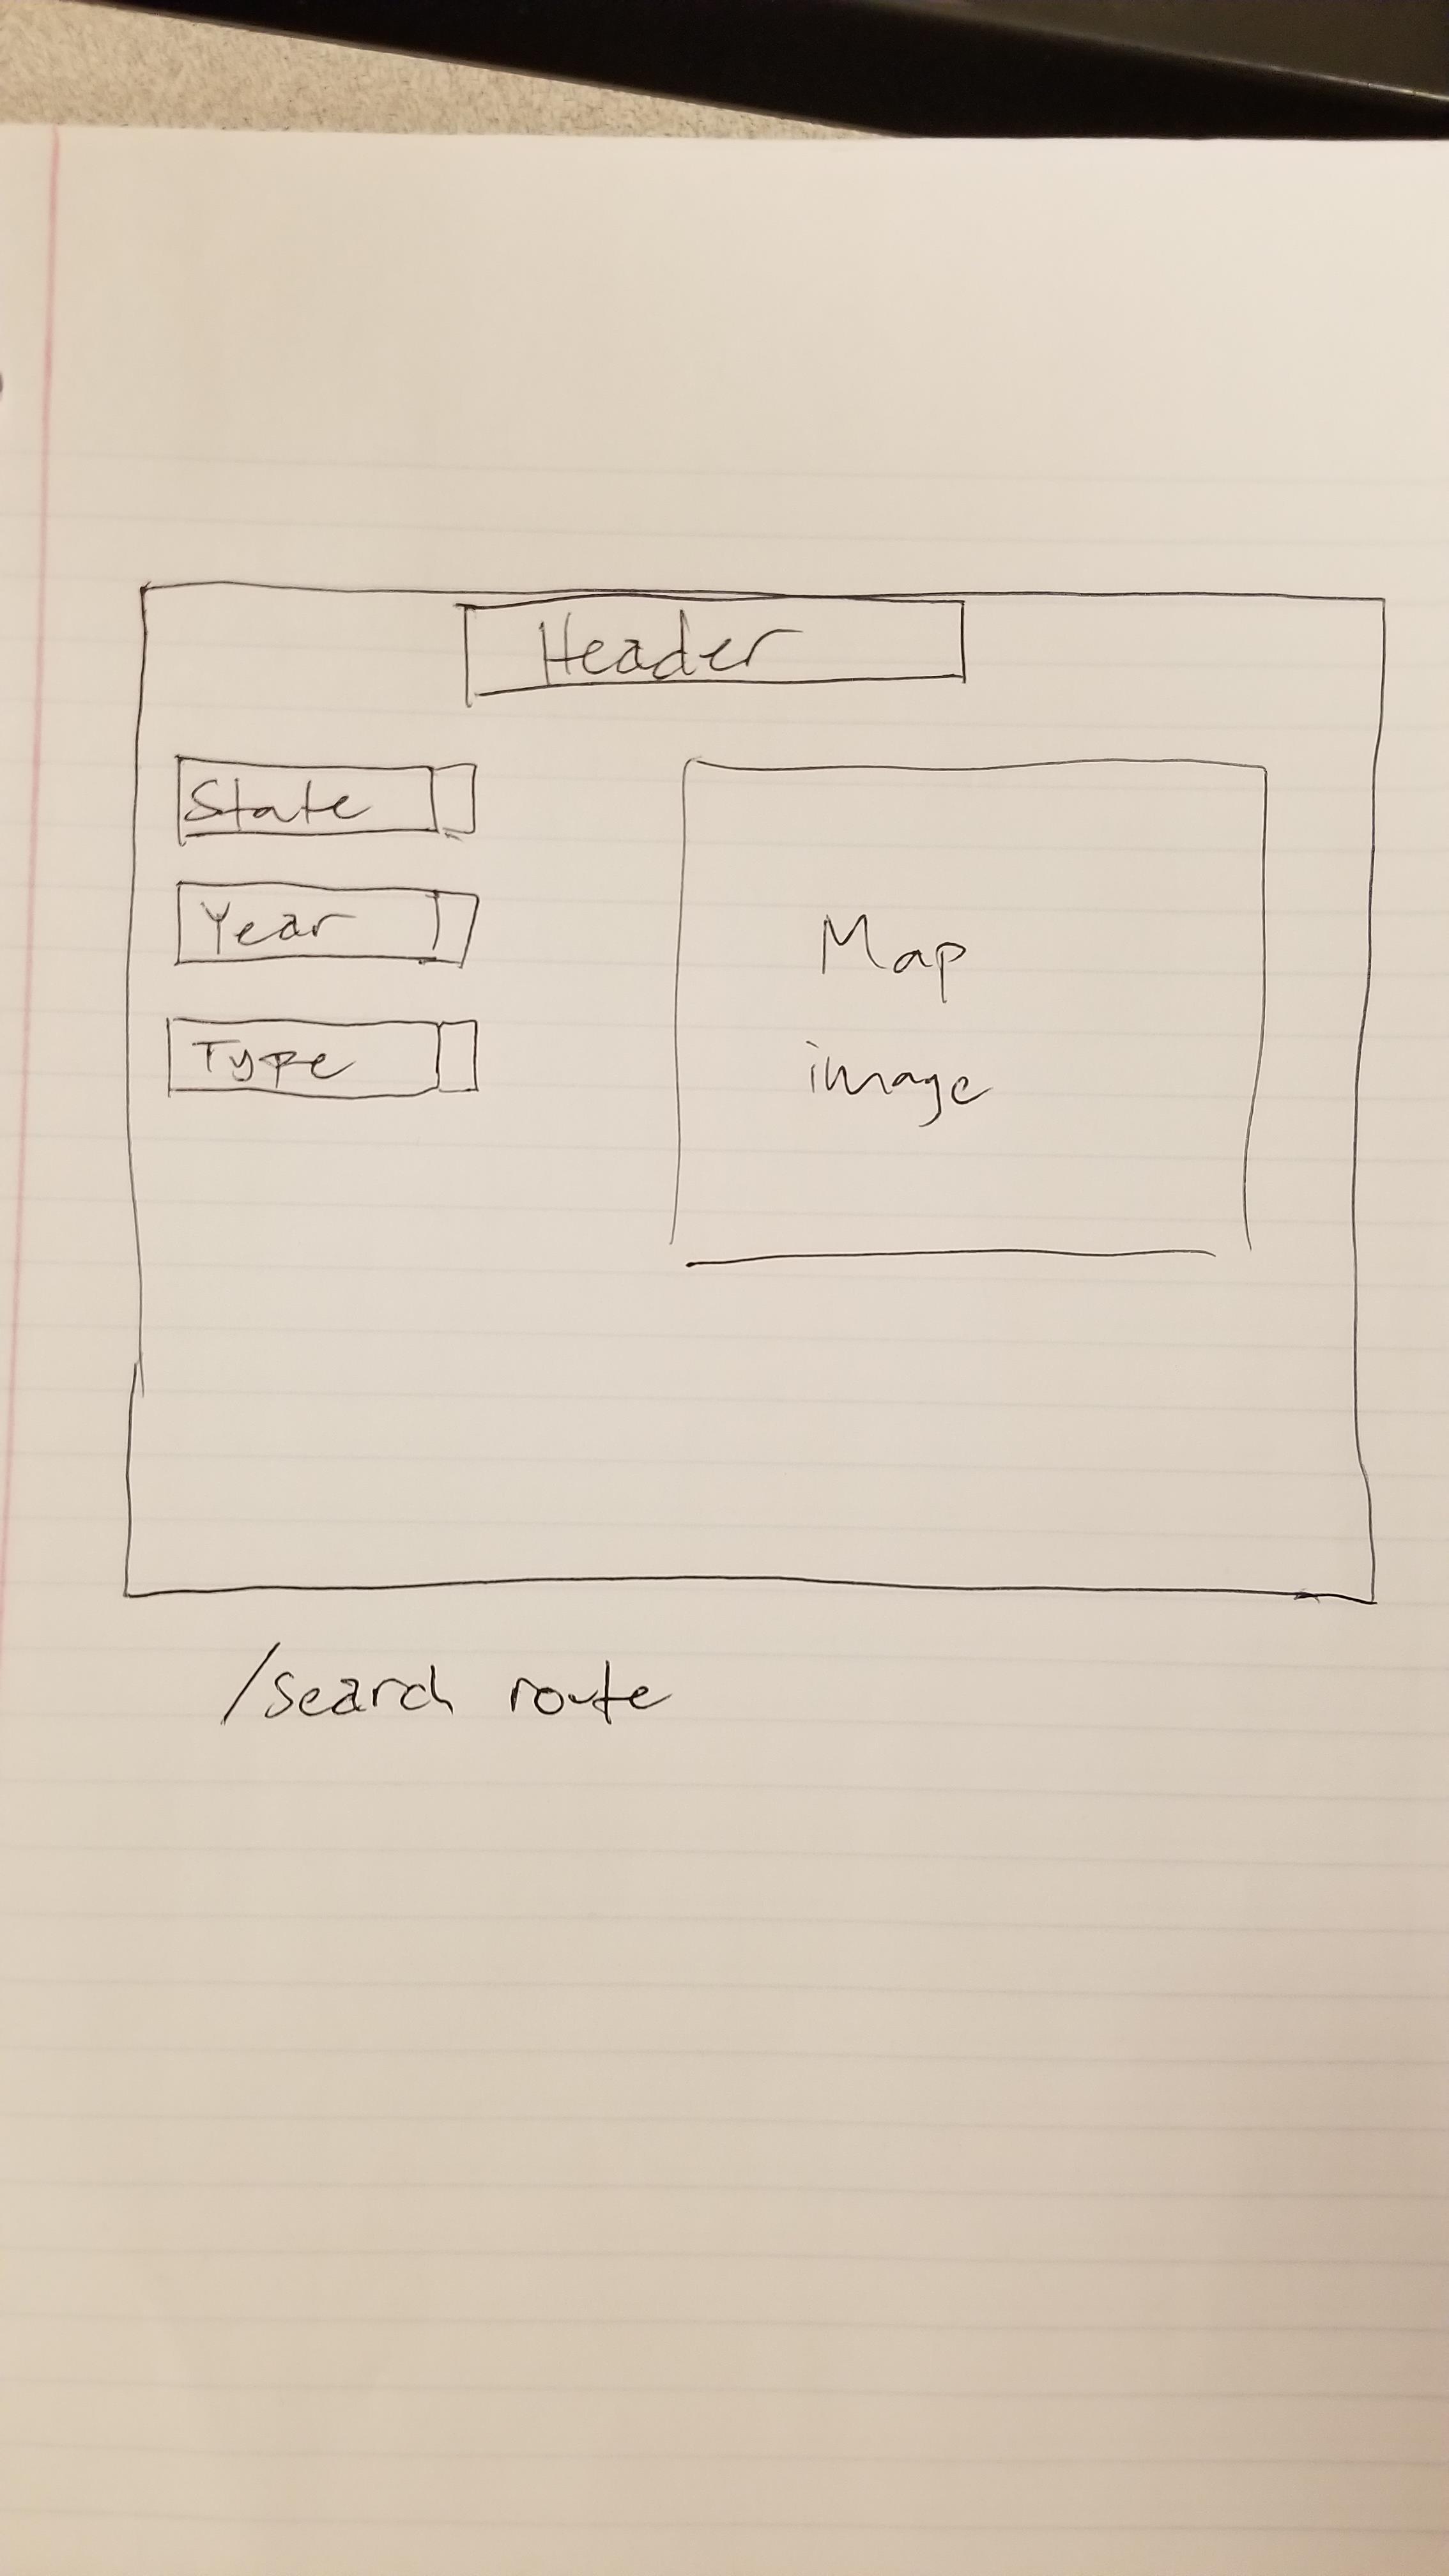 Header
State
Year
Type
Map
image
/search route